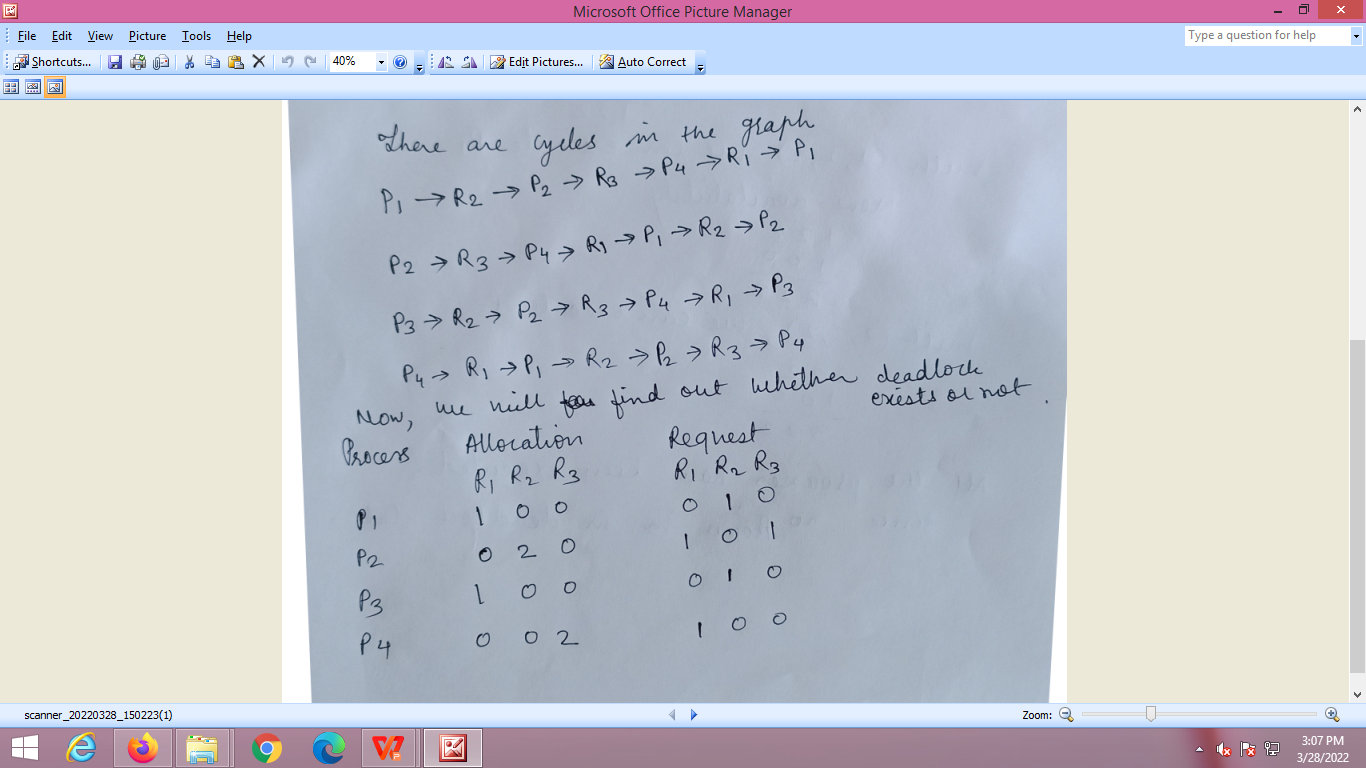 Microsoft Office Picture Manager
File Edit View Picture Tools Help
Type a question for help
Shortcuts... 40% Edit Pictures... Auto Correct
There are cycles in the graph
P1 → R2 → P2 → R3 → P4 → R1 → P1
P2 → R3 → P4 → R1 → P1 → R2 → P2
P3 → R2 → P2 → R3 → P4 → R1 → P3
P4 → R1 → P1 → R2 → P2 → R3 → P4
Now, we will find out whether deadlock
exists or not.
Process Allocation Request
R1 R2 R3 R1 R2 R3
P1 1 0 0 0 1 0
P2 0 2 0 1 0 1
P3 1 0 0 0 1 0
P4 0 0 2 1 0 0
scanner_20220328_150223(1)
Zoom:
3:07 PM
3/28/2022